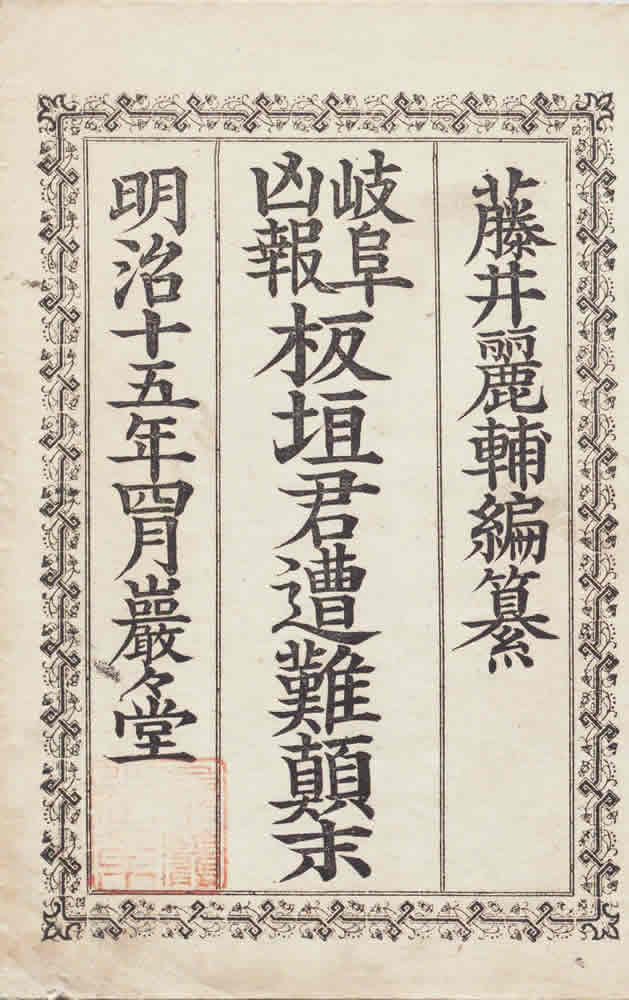 藤井麗輔編纂
岐阜
凶報
板垣君遭難顛末
明治十五年四月巖々堂